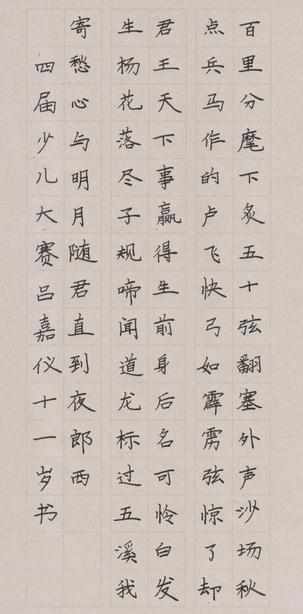 百里分麾下炙五十弦翻塞外声沙场秋
点兵马作的卢飞快弓如霹雳弦惊了却
君王天下事赢得生前身后名可怜白发
生杨花落尽子规啼闻道龙标过五溪我
寄愁心与明月随君直到夜郎西
四届少儿大赛吕嘉仪十一岁书